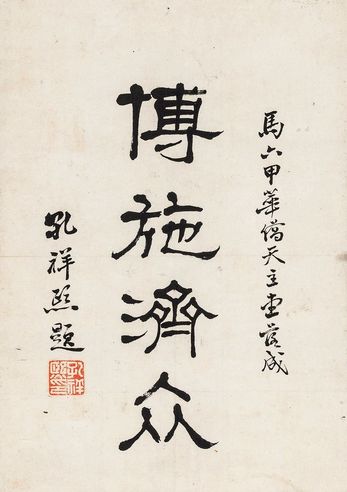 馬六甲華僑天主堂落成
博施濟众
孔祥熙題
孔祥熙印